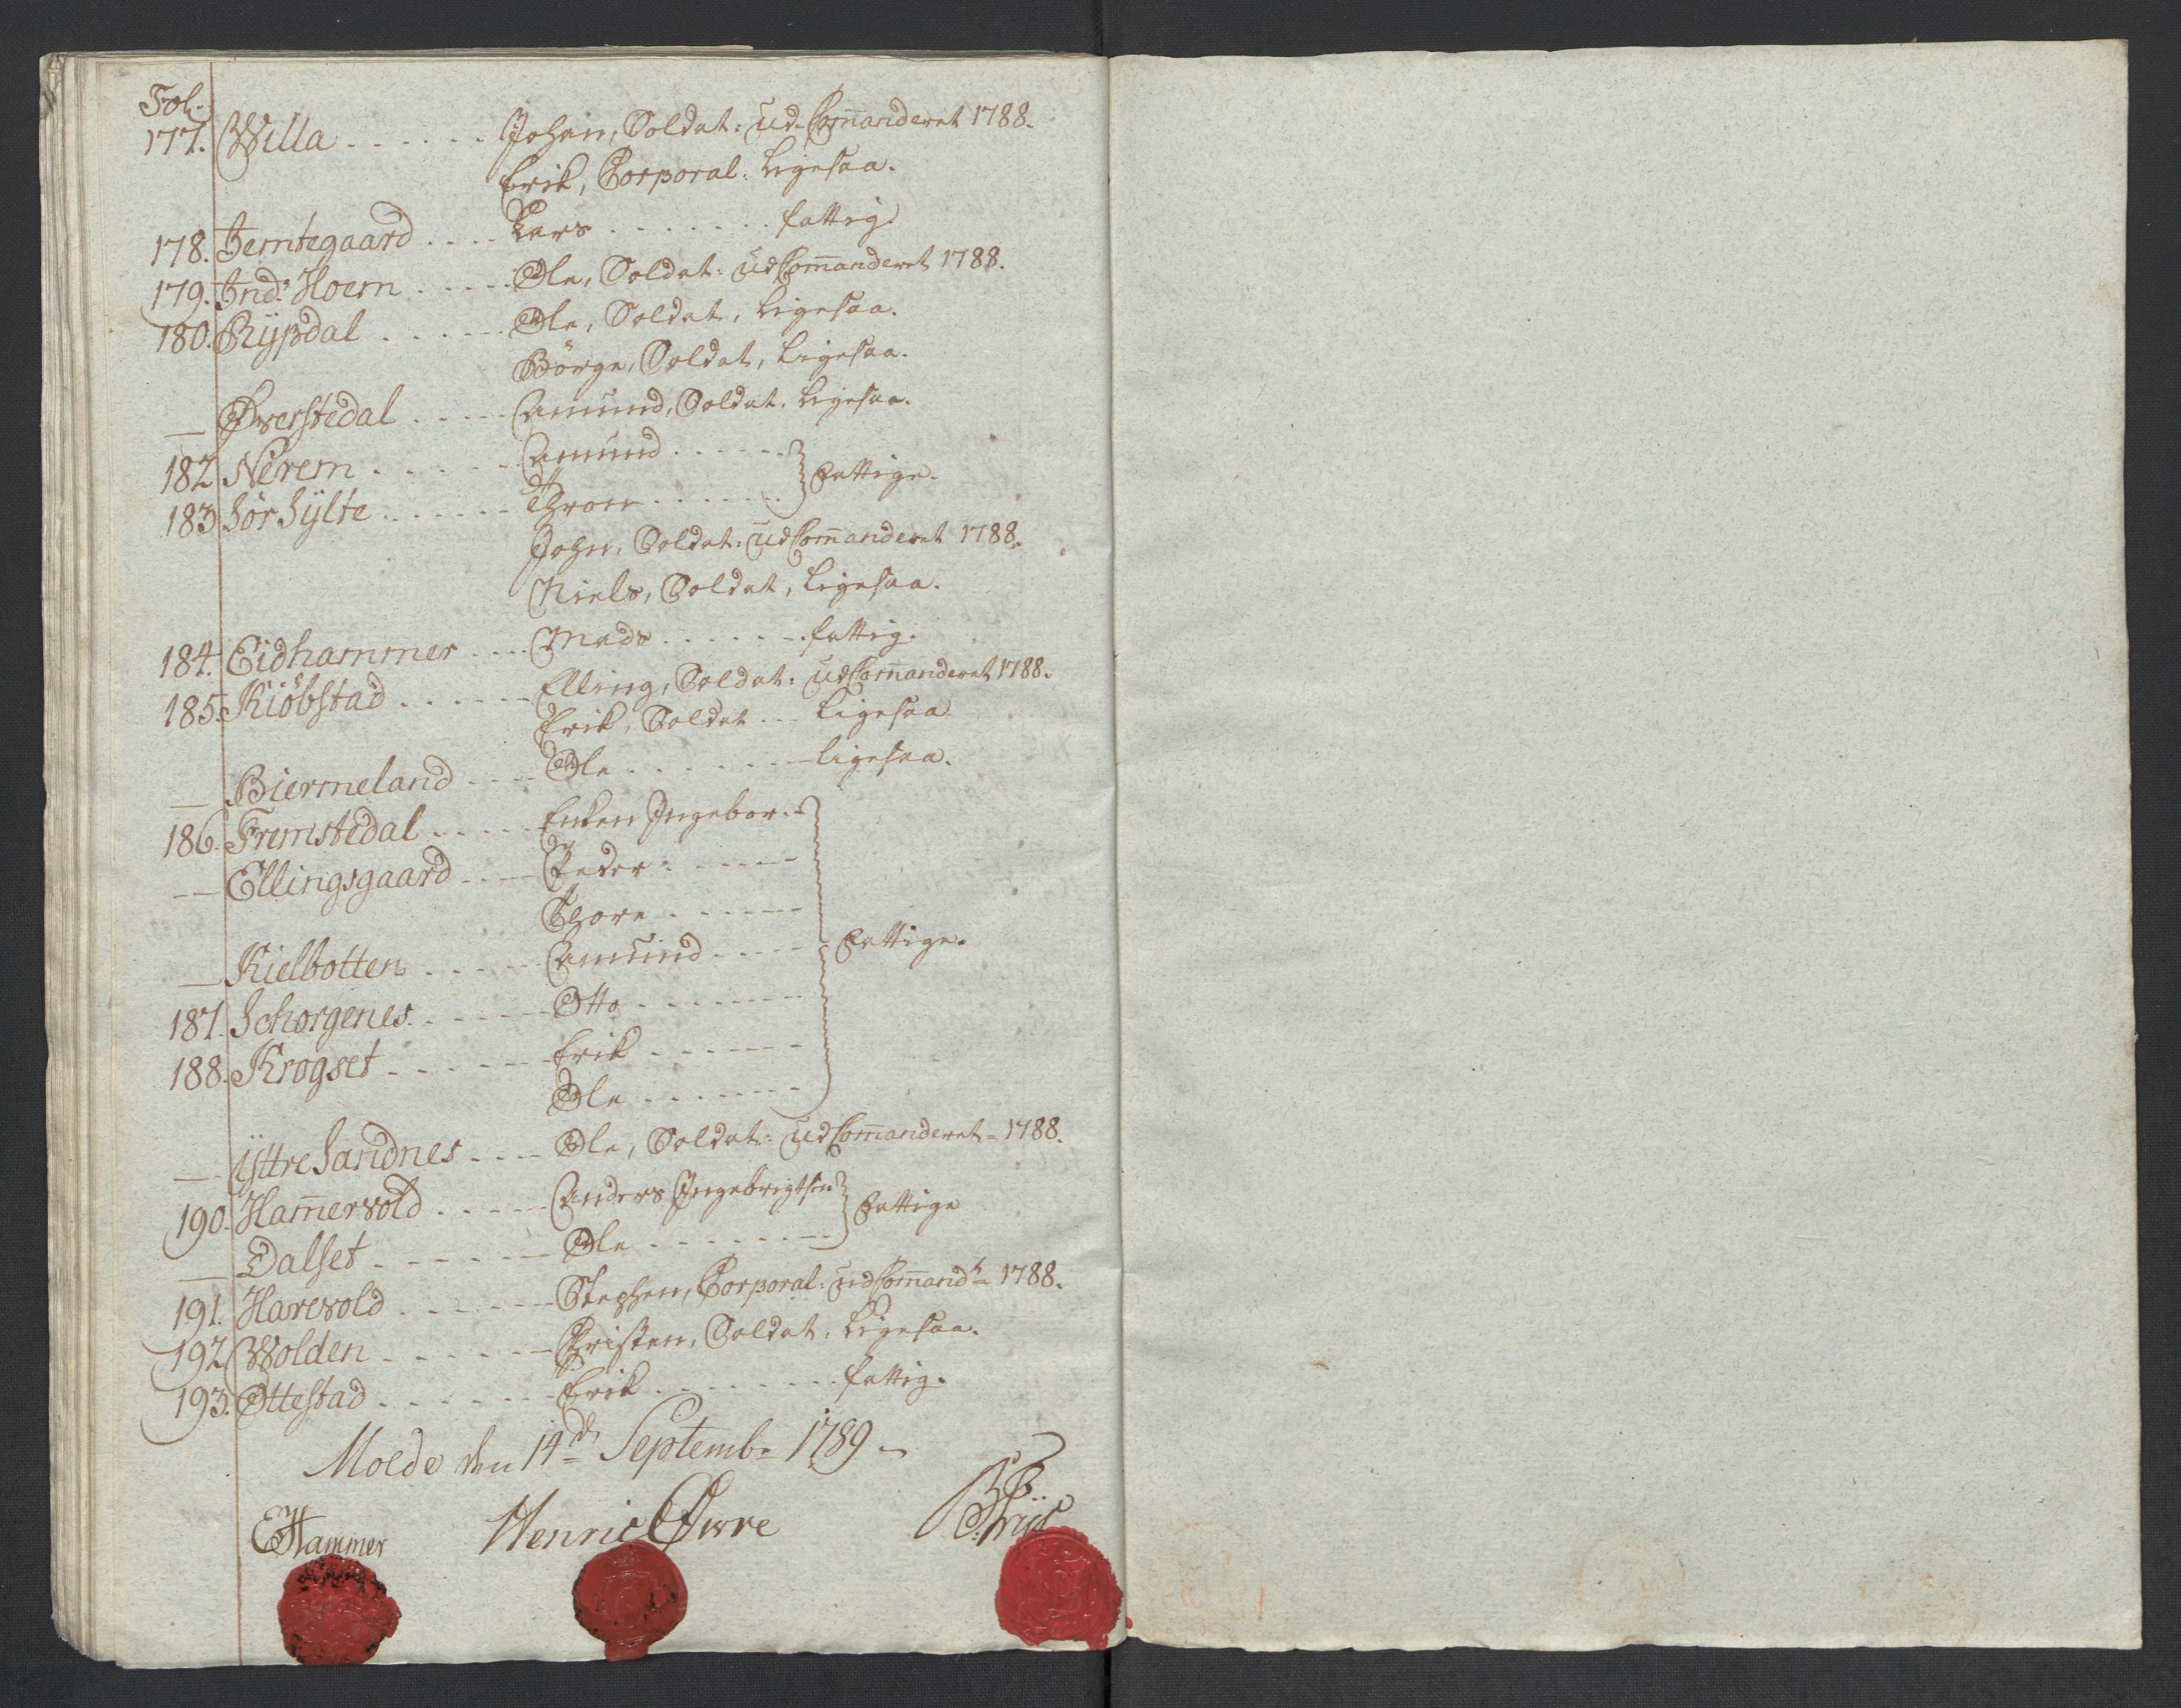 Fol.
177. Willa - - - - - - Johan, Soldat: ud-Com̄anderet 1788.
Erik, Corporal: ligesaa.
178. Jemtegaard - - - - Lars - - - - - - - fattig.
179. Ind: Hoem - - - - - Ole, Soldat: ud Com̄anderet 1788.
180. Rÿsdal - - - - - Ole, Soldat, ligesaa.
Börge, Soldat, Ligesaa.
— Øverstedal - - - - - Amund, Soldat, ligesaa.
182 Nerem - - - - - - Amund - - - - - -
183 Sør Sÿlte - - - - - - Thron - - - - - - } Fattige.
John, Soldat: ud Com̄anderet 1788.
Niels, Soldat, ligesaa.
184. Eidhammer - - - - Mads - - - - - - fattig.
185. Kiöbstad - - - - - - Elling, Soldat: ud Com̄anderet 1788.
Erik, Soldat - - - Ligesaa
— Biermeland - - - - Ole - - - - - - - ligesaa.
186. Fremstedal - - - - - Enken Ingebor. -
— Ellingsgaard - - - - Peder - - - - - -
Thore - - - - - -
— Kielbotten - - - - - Amund - - - - } Fattige.
187. Schorgenes - - - - - - Otto - - - - - - -
188. Krogset - - - - - - Erik - - - - - -
Ole - - - - - - -
— Ÿttre Sandnes - - - - Ole, Soldat: ud Com̄anderet - 1788.
190. Ham̄ervold - - - - - Anders Ingebrigtsen } Fattige
— Dalset - - - - - - Ole - - - - - - - -
191. Harevold - - - - - - Stephen, Corporal: ud Com̄andt 1788.
192 Wolden - - - - - - Christen, Soldat, Ligesaa.
193. Ottestad - - - - - - - Erik - - - - - - - - fattig.
Molde den 14de Septembr 1789 -
EHammer Henric Øwre